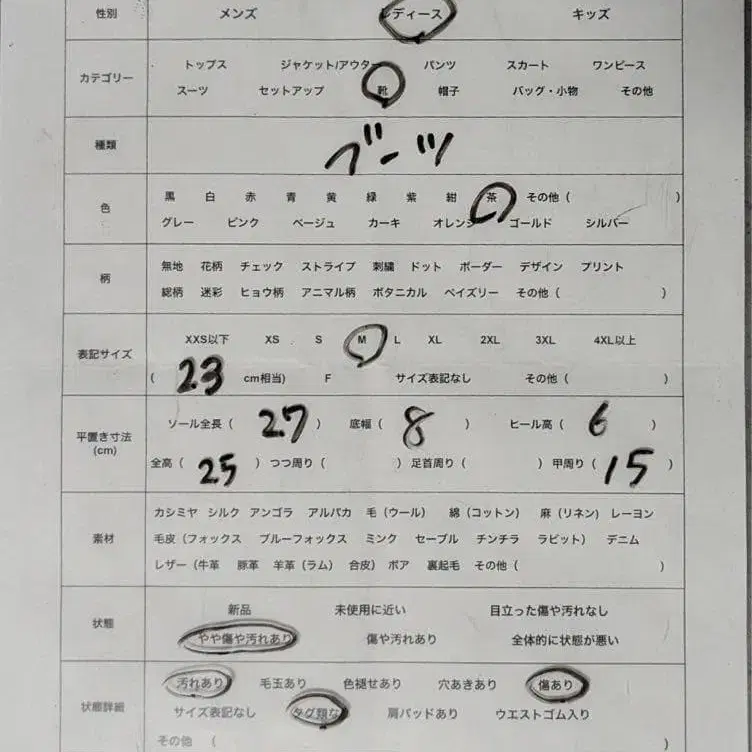 性別 メンズ レディース キッズ
カテゴリー
トップス ジャケット/アウター パンツ スカート ワンピース
スーツ セットアップ 靴 帽子 バッグ・小物 その他
種類 ブーツ
色
黒 白 赤 青 黄 緑 紫 紺 茶 その他 ( )
グレー ピンク ベージュ カーキ オレンジ ゴールド シルバー
柄
無地 花柄 チェック ストライプ 刺繍 ドット ボーダー デザイン プリント
総柄 迷彩 ヒョウ柄 アニマル柄 ボタニカル ペイズリー その他 ( )
表記サイズ
XXS以下 XS S M L XL 2XL 3XL 4XL以上
( 23 cm相当) F サイズ表記なし その他 ( )
平置き寸法
(cm)
ソール全長 ( 27 ) 底幅 ( 8 ) ヒール高 ( 6 )
全高 ( 25 ) つつ周り ( ) 足首周り ( ) 甲周り ( 15 )
素材
カシミヤ シルク アンゴラ アルパカ 毛 (ウール) 綿 (コットン) 麻 (リネン) レーヨン
毛皮 (フォックス ブルーフォックス ミンク セーブル チンチラ ラビット) デニム
レザー (牛革 豚革 羊革 (ラム) 合皮) ボア 裏起毛 その他 ( )
状態
新品 未使用に近い 目立った傷や汚れなし
やや傷や汚れあり 傷や汚れあり 全体的に状態が悪い
状態詳細
汚れあり 毛玉あり 色褪せあり 穴あきあり 傷あり
サイズ表記なし タグ類なし 肩パッドあり ウエストゴム入り
その他 ( )